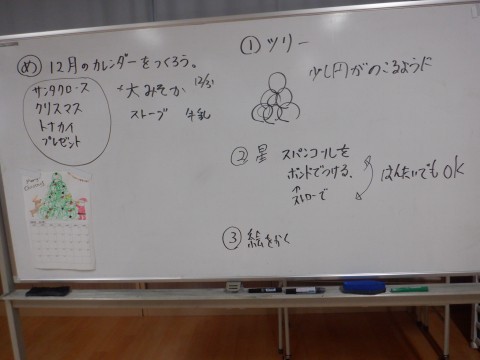 め 12月のカレンダーをつくろう。
サンタクロース
クリスマス
トナカイ
プレゼント
大みそか 12/31
ストーブ 牛乳
① ツリー
少し円がのこるように
② 星 スパンコールを
ボンドでつける。
↑
ストローで
はんたいでもOK
③ 絵をかく